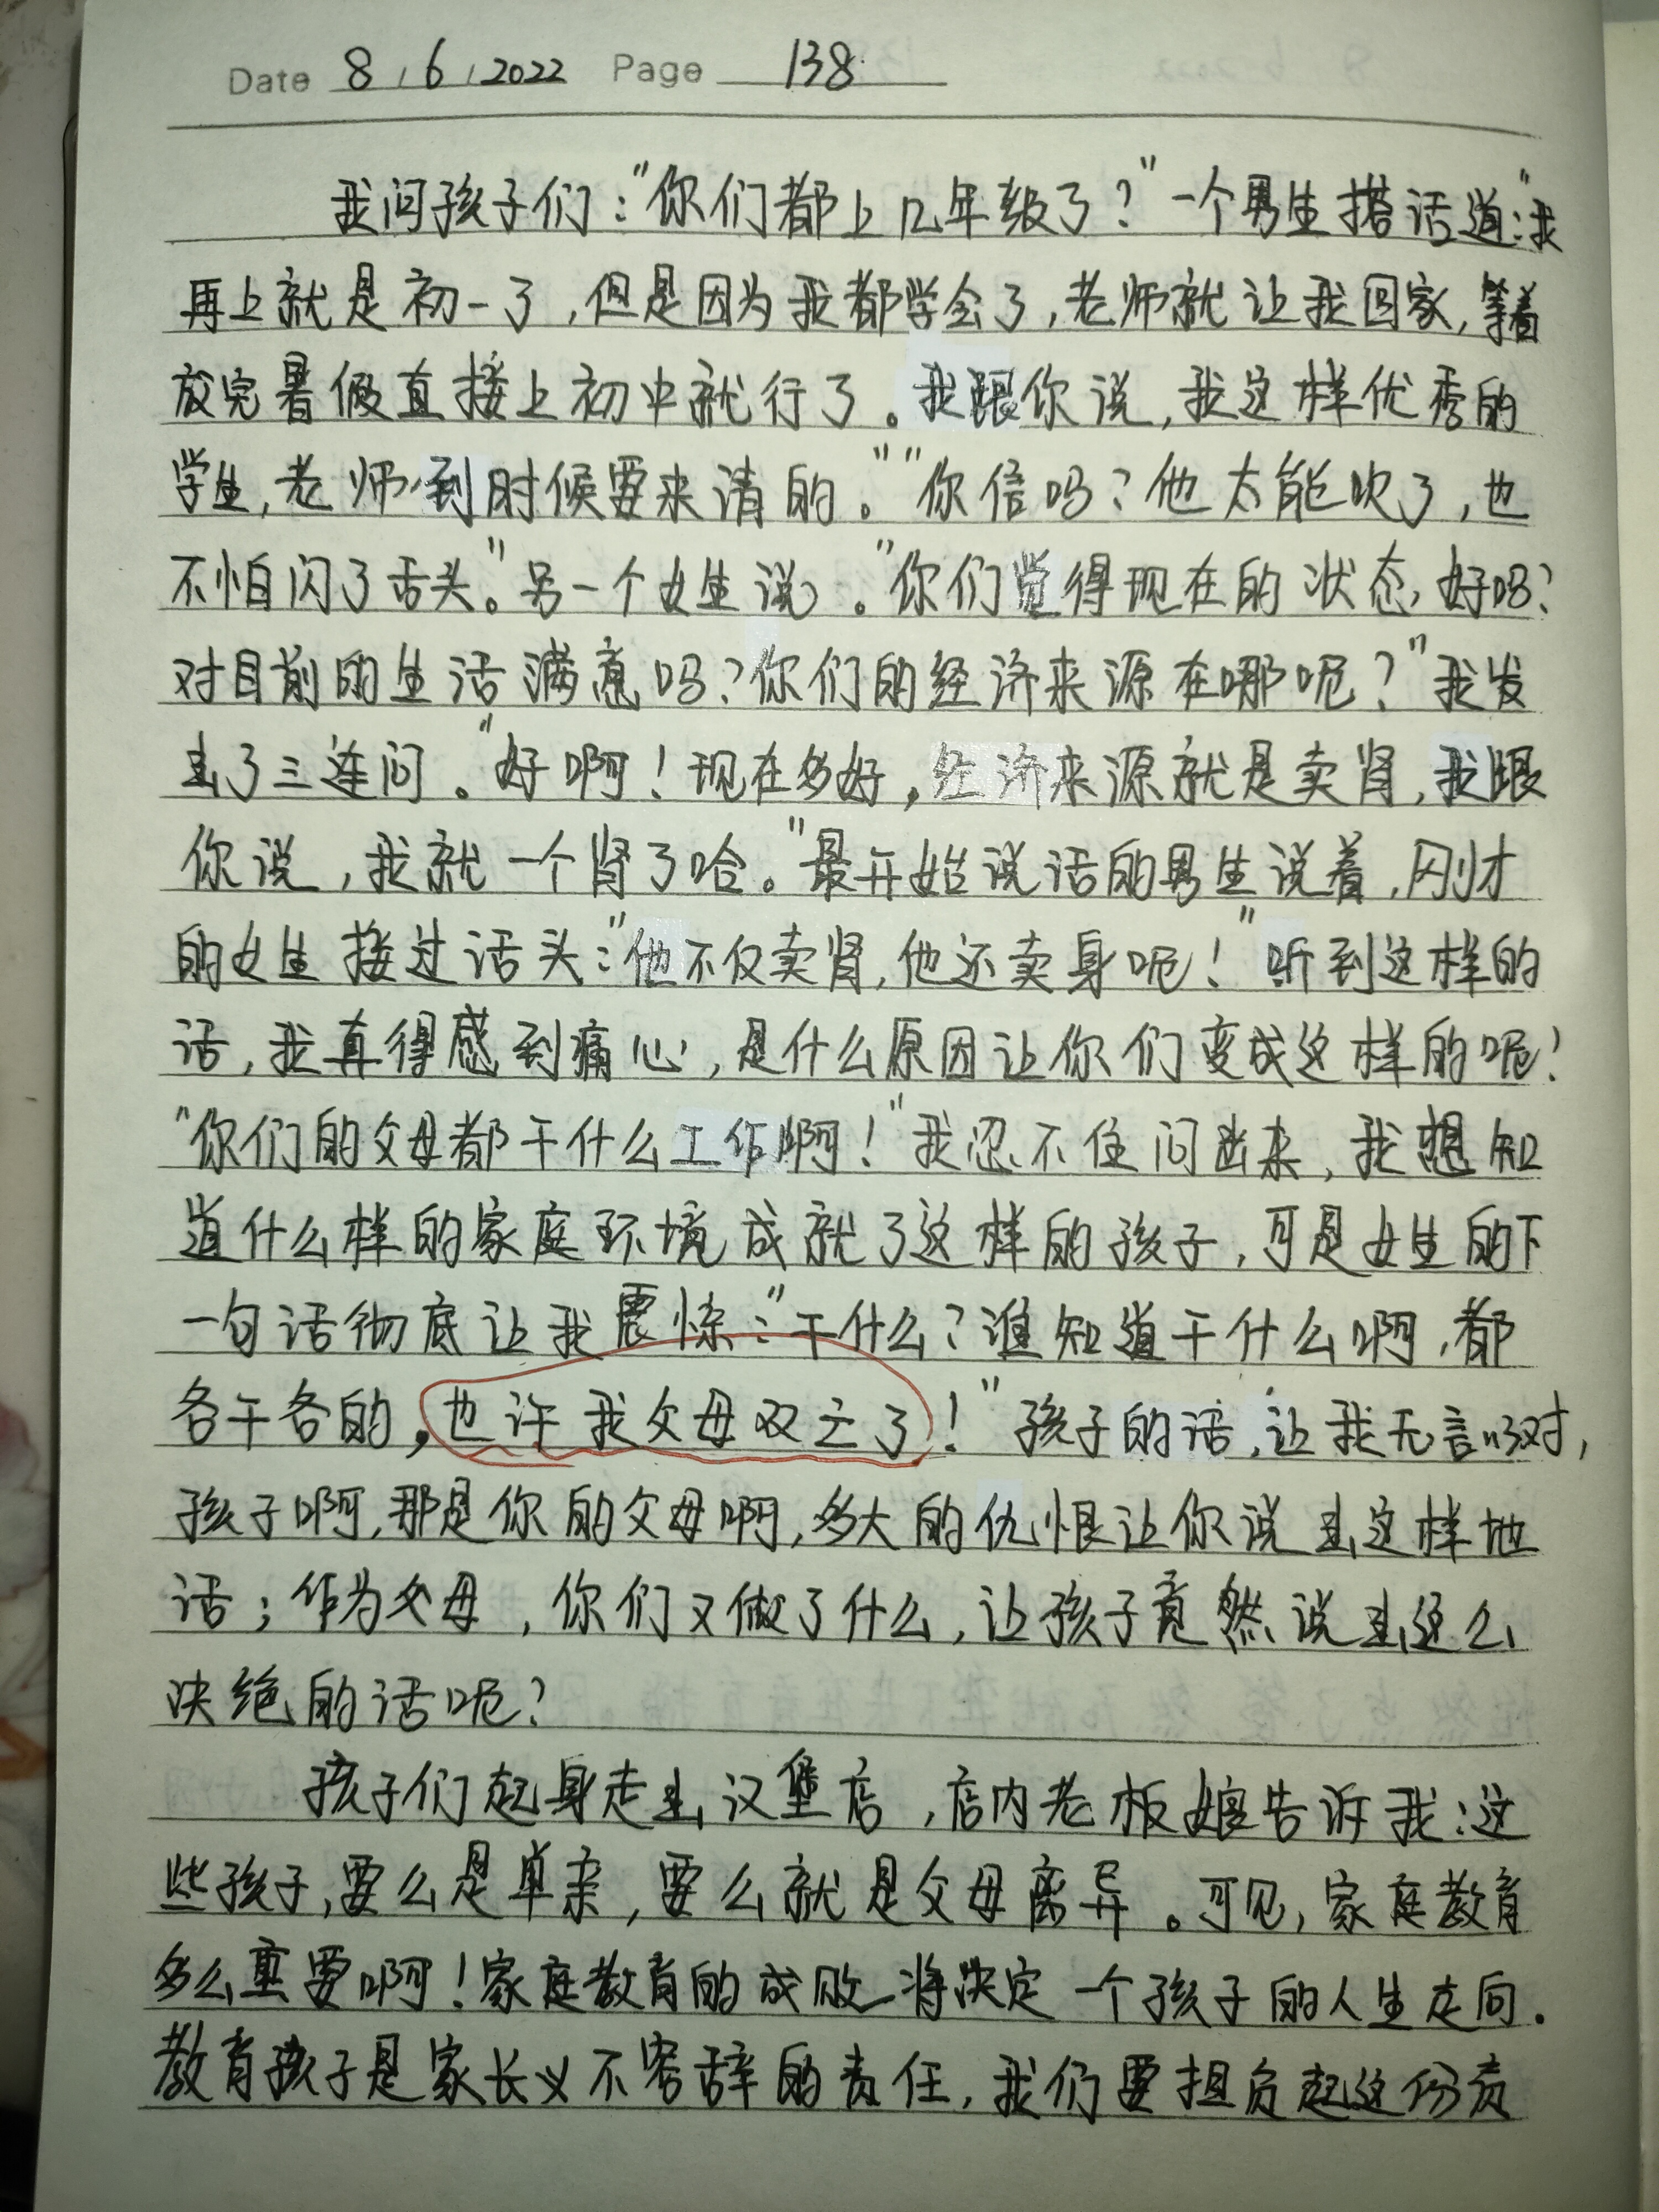 Date 8 / 6 / 2022 Page 138
我问孩子们:"你们都上几年级了?"一个男生搭话道:"我
再上就是初一了,但是因为我都学会了,老师就让我回家,等着
放完暑假直接上初中就行了。我跟你说,我这样优秀的
学生,老师到时候要来请的。""你信吗?他太能吹了,也
不怕闪了舌头。"另一个女生说。"你们觉得现在的状态好吗?
对目前的生活满意吗?你们的经济来源在哪呢?"我发
出了三连问。"好啊!现在多好,经济来源就是卖肾,我跟
你说,我就一个肾了哈。"最开始说话的男生说着,刚才
的女生接过话头:"他不仅卖肾,他还卖身呢!"听到这样的
话,我真得感到痛心,是什么原因让你们变成这样的呢?
"你们的父母都干什么工作啊!"我忍不住问出来,我想知
道什么样的家庭环境成就了这样的孩子,可是女生的下
一句话彻底让我震惊:"干什么?谁知道干什么啊,都
各干各的,也许我父母双亡了!"孩子的话,让我无言以对,
孩子啊,那是你的父母啊,多大的仇恨让你说出这样地
话;作为父母,你们又做了什么,让孩子竟然说出这么
决绝的话呢?
孩子们起身走出汉堡店,店内老板娘告诉我:这
些孩子,要么是单亲,要么就是父母离异。可见,家庭教育
多么重要啊!家庭教育的成败将决定一个孩子的人生走向.
教育孩子是家长义不容辞的责任,我们要担负起这份责